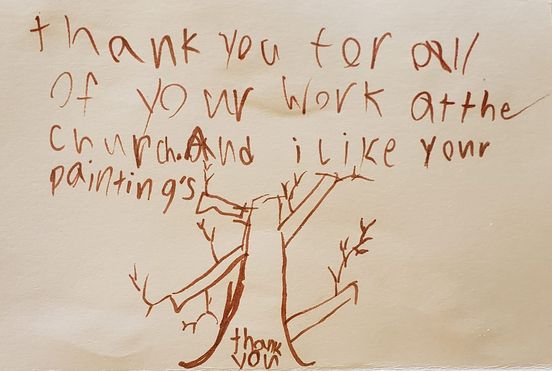 thank you for all
of your work at the
church. And i like your
painting's
thank
you